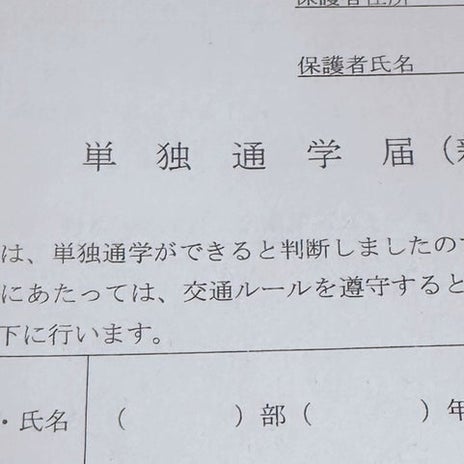 保護者住所
保護者氏名
単 独 通 学 届（
は、単独通学ができると判断しましたので
にあたっては、交通ルールを遵守すると
下に行います。
・氏名 （ ）部（ ）年